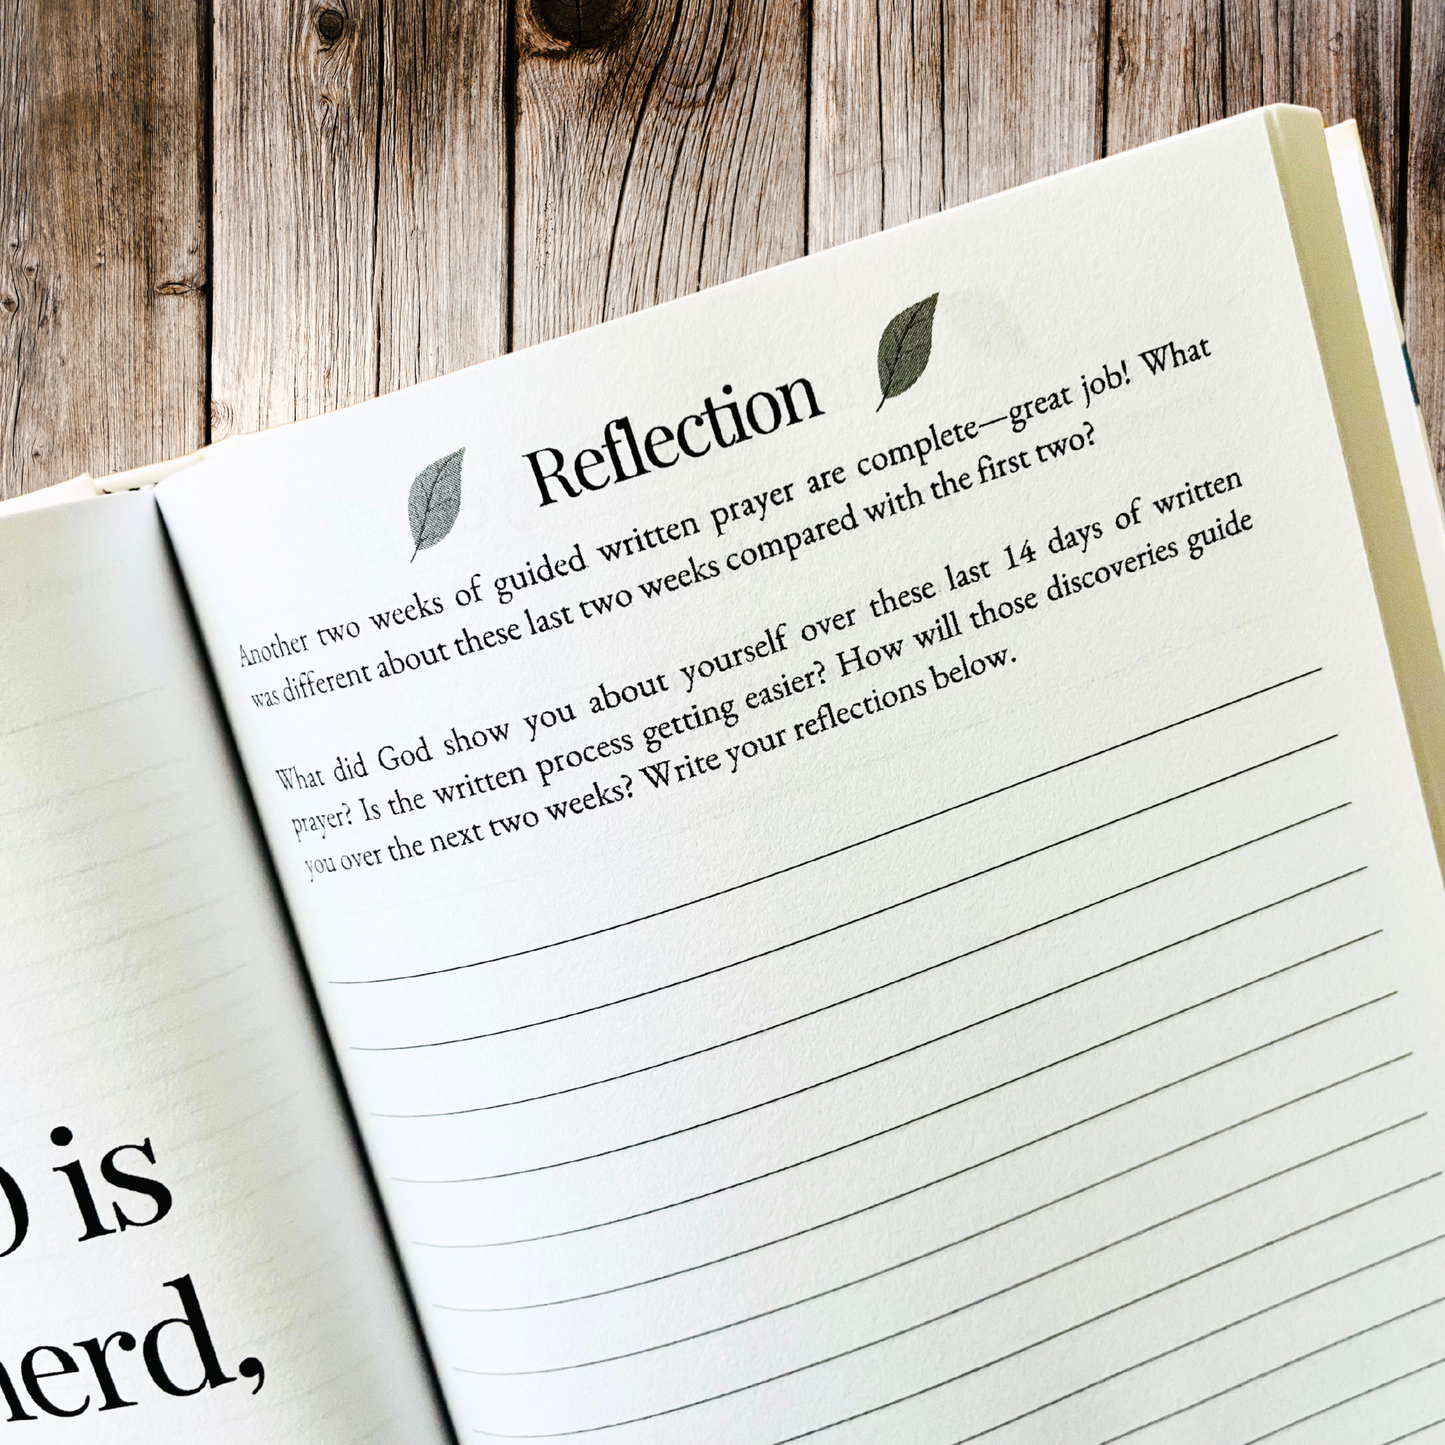 is
Reflection
Another two weeks of guided written prayer are complete—great job! What
was different about these last two weeks compared with the first two?
What did God show you about yourself over these last 14 days of written
prayer? Is the written process getting easier? How will those discoveries guide
you over the next two weeks? Write your reflections below.